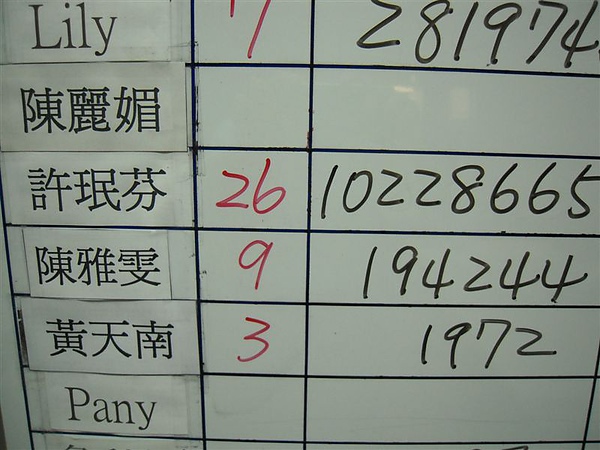 Lily 7 281974
陳麗媚
許珉芬 26 10228665
陳雅雯 9 194244
黃天南 3 1972
Pany